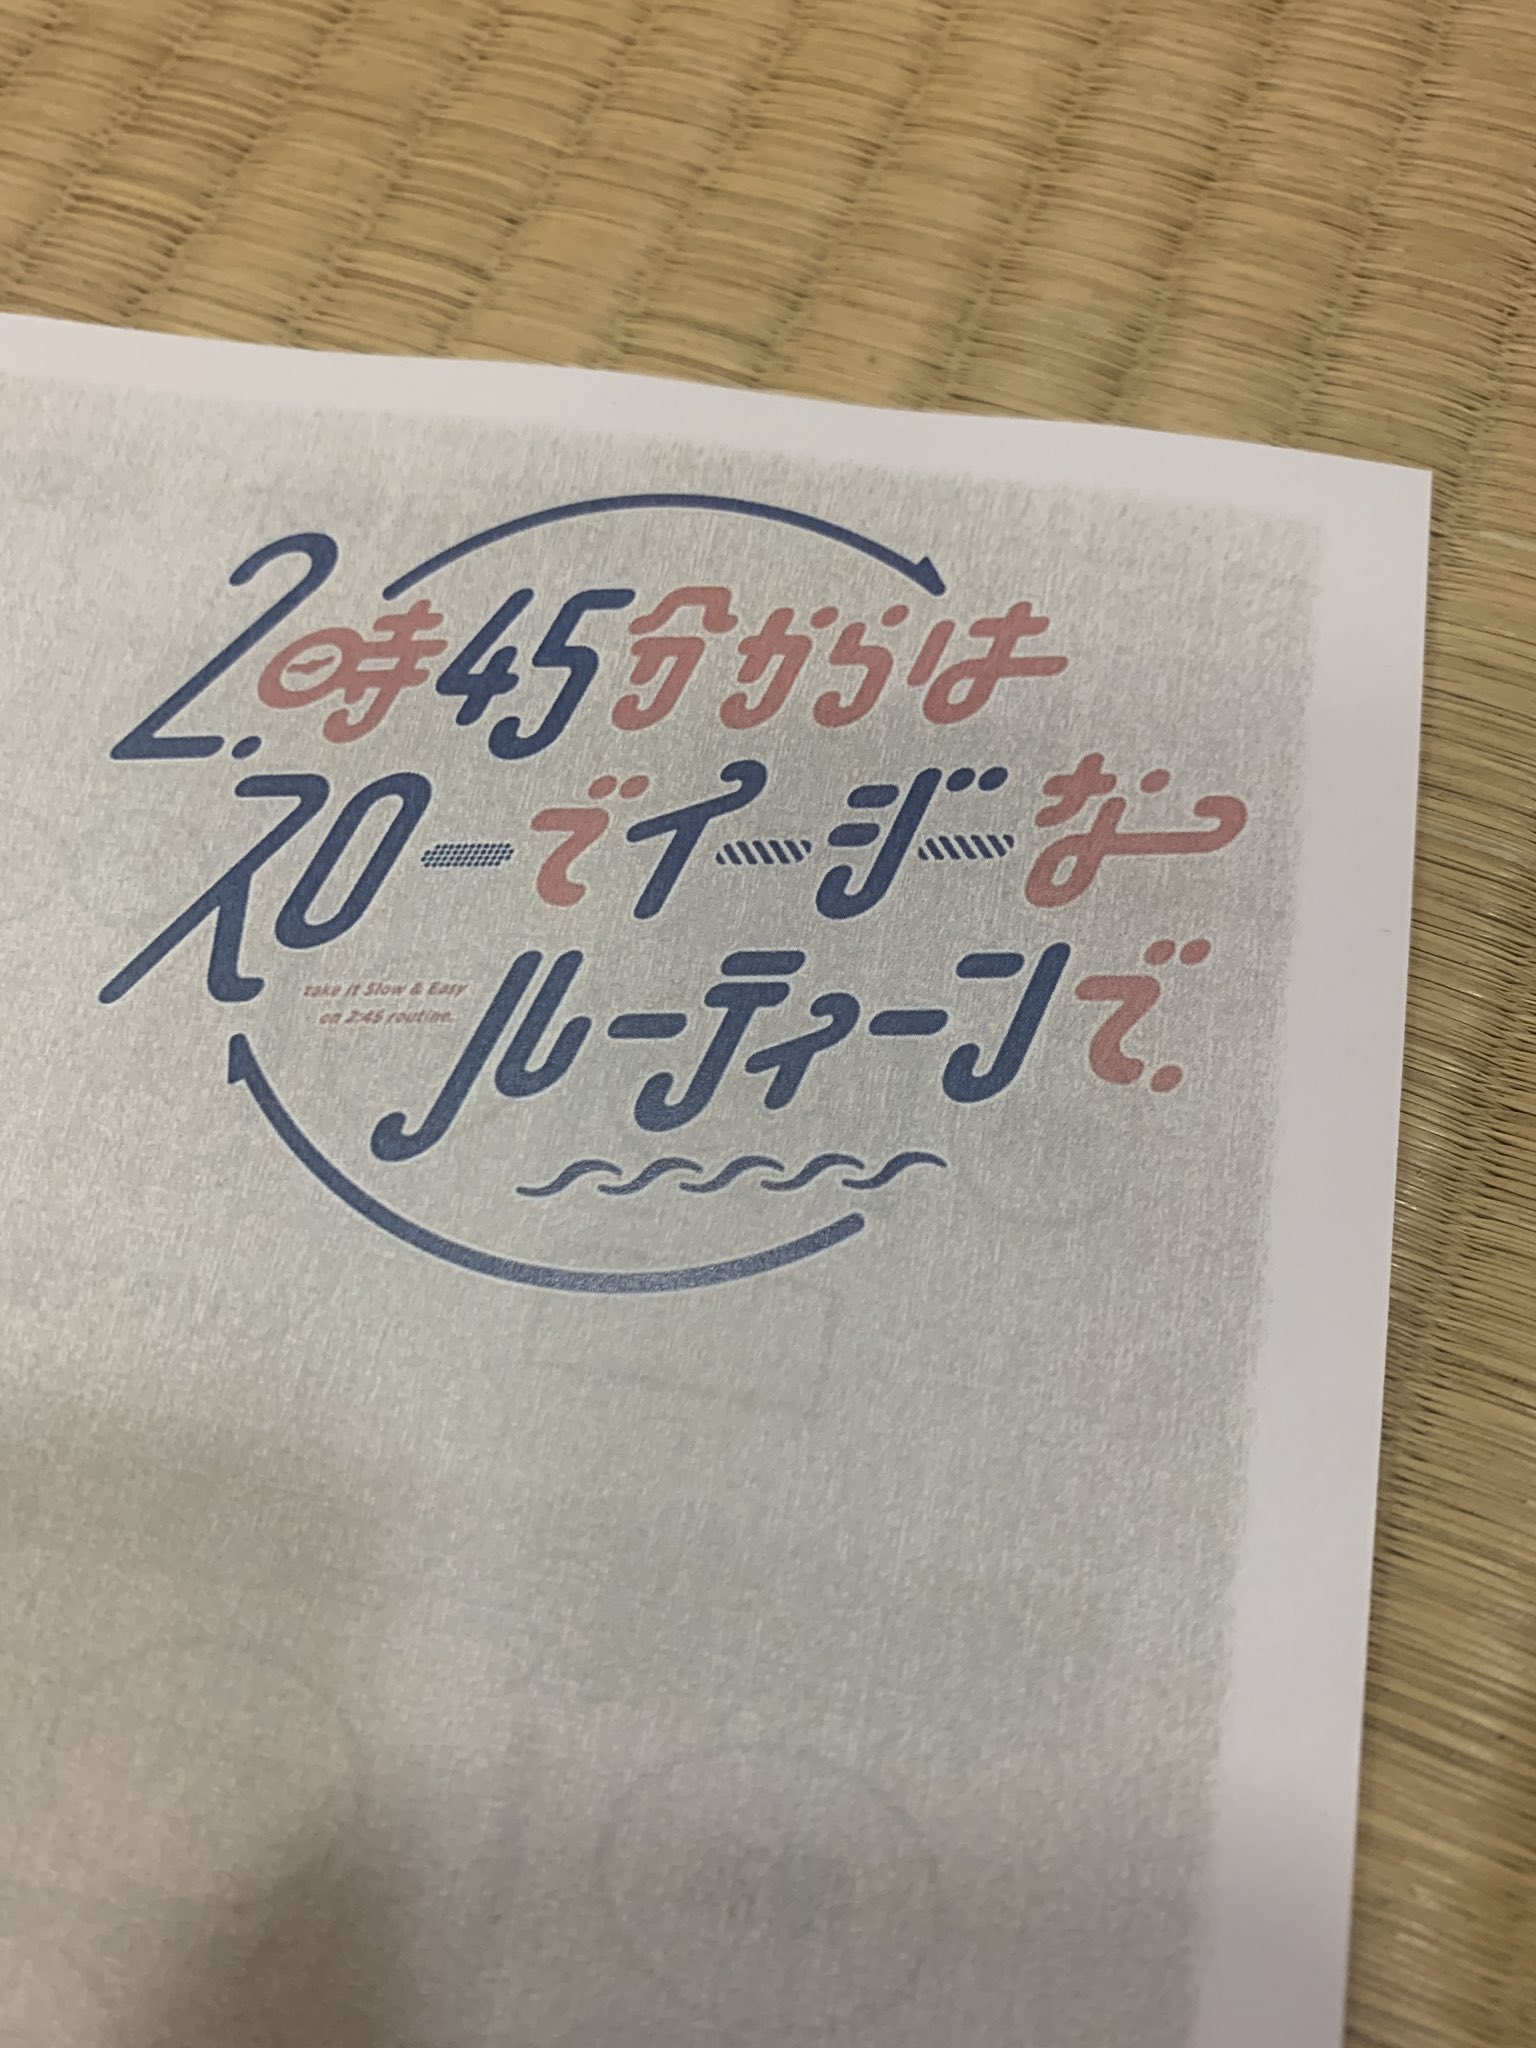 2.時45分からは
スローでイージーな
ルーティーンで.
take it Slow & Easy
on 2:45 routine.